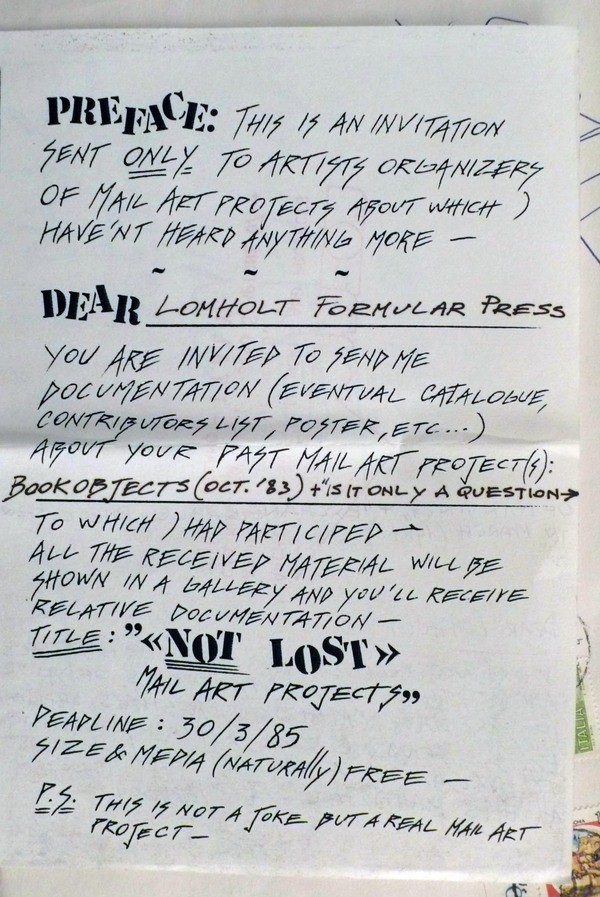 PREFACE: THIS IS AN INVITATION
SENT ONLY TO ARTISTS ORGANIZERS
OF MAIL ART PROJECTS ABOUT WHICH I
HAVE'NT HEARD ANYTHING MORE —
~ ~ ~
DEAR LOMHOLT FORMULAR PRESS
YOU ARE INVITED TO SEND ME
DOCUMENTATION (EVENTUAL CATALOGUE,
CONTRIBUTORS LIST, POSTER, ETC...)
ABOUT YOUR PAST MAIL ART PROJECT(S):
BOOKOBJECTS (OCT. '83) + "IS IT ONLY A QUESTION→
TO WHICH I HAD PARTICIPED —
ALL THE RECEIVED MATERIAL WILL BE
SHOWN IN A GALLERY AND YOU'LL RECEIVE
RELATIVE DOCUMENTATION —
TITLE: "«NOT LOST»
MAIL ART PROJECTS"
DEADLINE: 30/3/85
SIZE & MEDIA (NATURALLY) FREE —
P.S. THIS IS NOT A JOKE BUT A REAL MAIL ART
PROJECT —
ITALIA